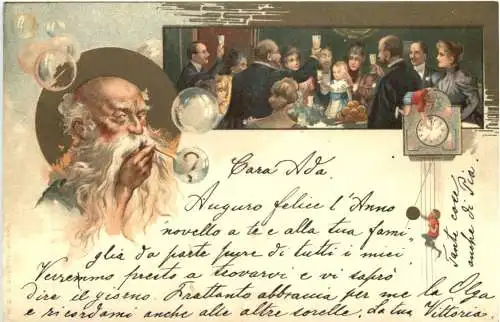 ?
Cara Ada.
Auguro felice l'Anno
novello a te e alla tua fami
glia da parte pure di tutti i miei.
Verremmo presto a trovarvi e vi saprò
dire il giorno. Frattanto abbraccia per me la Olga
e ricordami anche alle altre sorelle. La tua Vittoria.
Tante cose
anche di Pia.